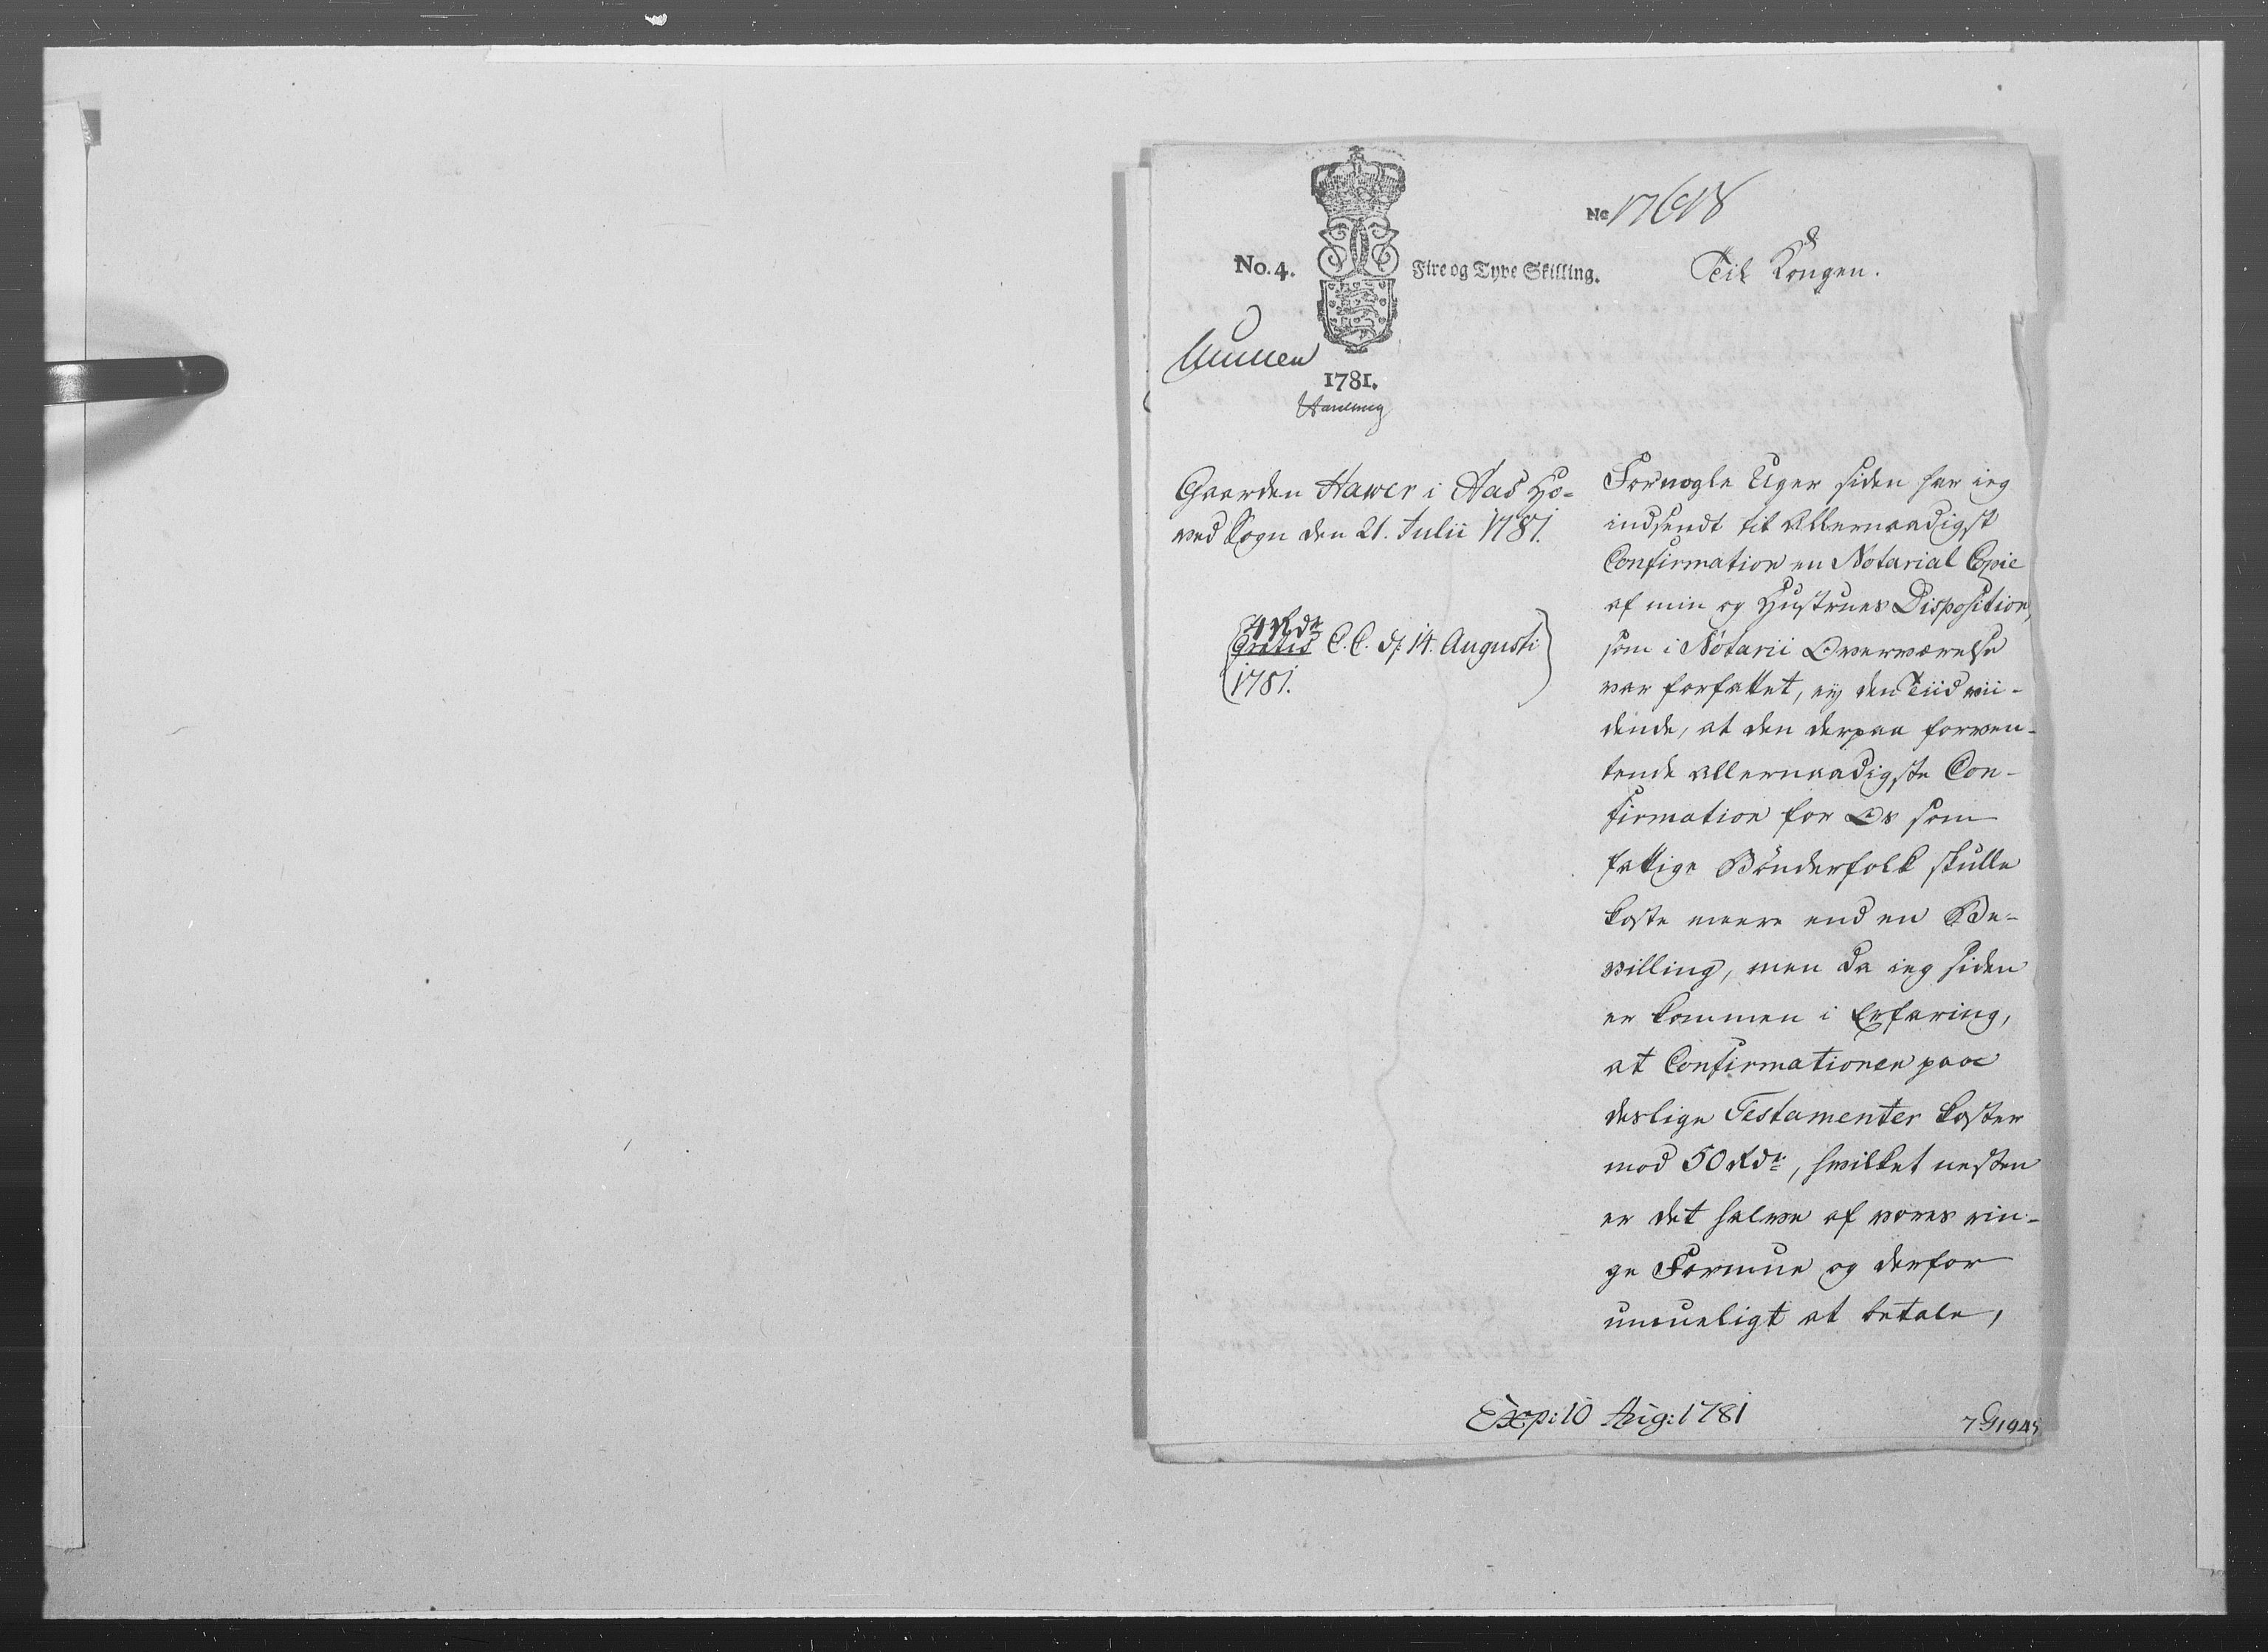 No. 4.
Fire og Tyve Skilling.
1781.
Til Kongen.
Gaarden Hawer i Aas Ho-
ved Sogn den 21. Julii 1781.
4 Rdr
Gratis C. C. d: 14. Augusti
1781.
For nogle Uger siden har ieg
indsendt til Allernaadigst
Confirmation en Notarial Copie
af min og Hustrues Disposition,
som i Notarii Overværelse
var forfattet, ej den Tiid vii-
dende, at den derpaa forven-
tende allernaadigste Con-
firmation for Os som
fattige Bönderfolk skulle
koste meere end en Be-
villing, men da ieg siden
er kommen i Erfaring,
at Confirmationen paa
deslige Testamenter koster
mod 50 Rdr, hvilket nesten
er det halve af vores rin-
ge Formue og derfor
umueligt at betale,
Exp: 10 Aug: 1781